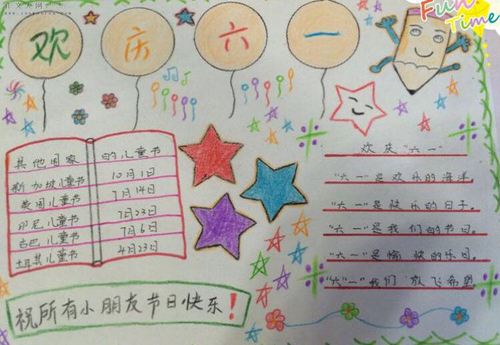 欢庆六一
Fun Time
其他国家的儿童节
新加坡儿童节 10月1日
英国儿童节 7月14日
印尼儿童节 7月23日
古巴儿童节 7月6日
土耳其儿童节 4月23日
祝所有小朋友节日快乐！
欢庆"六一"
"六一"是欢乐的海洋
"六一"是快乐的日子.
"六一"是我们的节日.
"六一"是愉快的乐园.
"六一"我们放飞希望